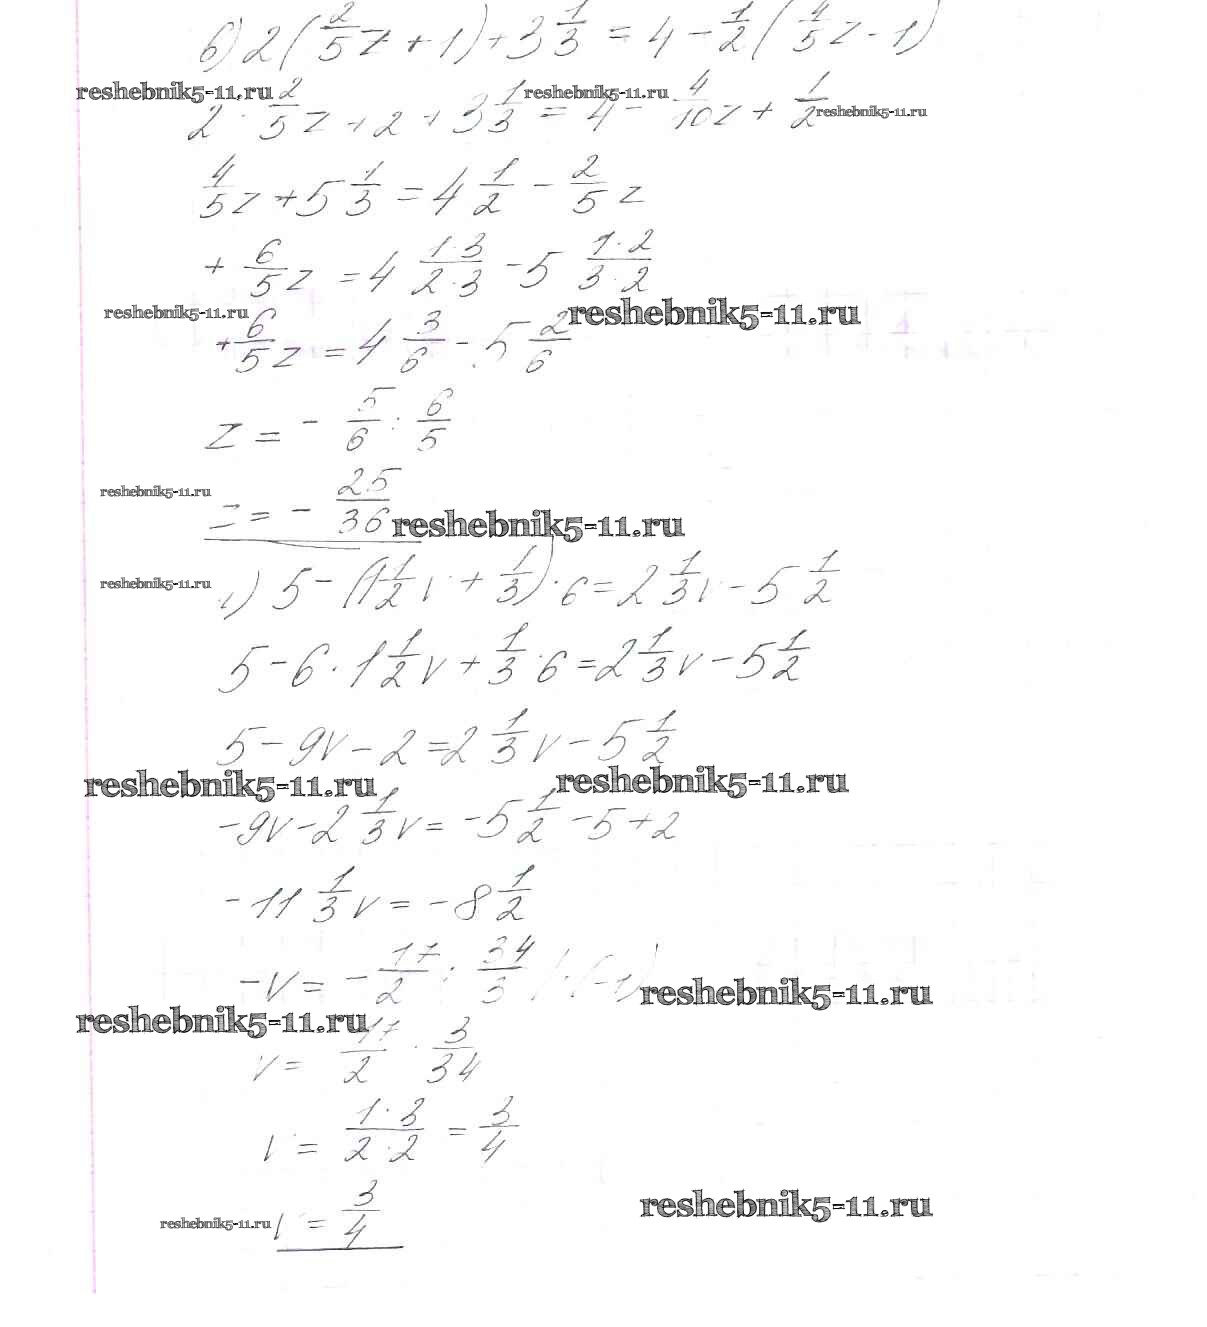 б) 2(2/5 z + 1) + 3 1/3 = 4 - 1/2 (4/5 z - 1)
reshebnik5-11.ru reshebnik5-11.ru reshebnik5-11.ru
2 · 2/5 z + 2 + 3 1/3 = 4 - 4/10 z + 1/2
4/5 z + 5 1/3 = 4 1/2 - 2/5 z
+ 6/5 z = 4 1·3/2·3 - 5 1·2/3·2
reshebnik5-11.ru reshebnik5-11.ru
+ 6/5 z = 4 3/6 - 5 2/6
z = - 5/6 : 6/5
reshebnik5-11.ru
z = - 25/36
reshebnik5-11.ru
reshebnik5-11.ru
) 5 - (1 1/2 v + 1/3) · 6 = 2 1/3 v - 5 1/2
5 - 6 · 1 1/2 v + 1/3 · 6 = 2 1/3 v - 5 1/2
5 - 9v - 2 = 2 1/3 v - 5 1/2
reshebnik5-11.ru reshebnik5-11.ru
-9v - 2 1/3 v = -5 1/2 - 5 + 2
-11 1/3 v = -8 1/2
-v = - 17/2 : 34/3 | · (-1)
reshebnik5-11.ru
reshebnik5-11.ru
v = 17/2 · 3/34
v = 1·3/2·2 = 3/4
v = 3/4
reshebnik5-11.ru reshebnik5-11.ru